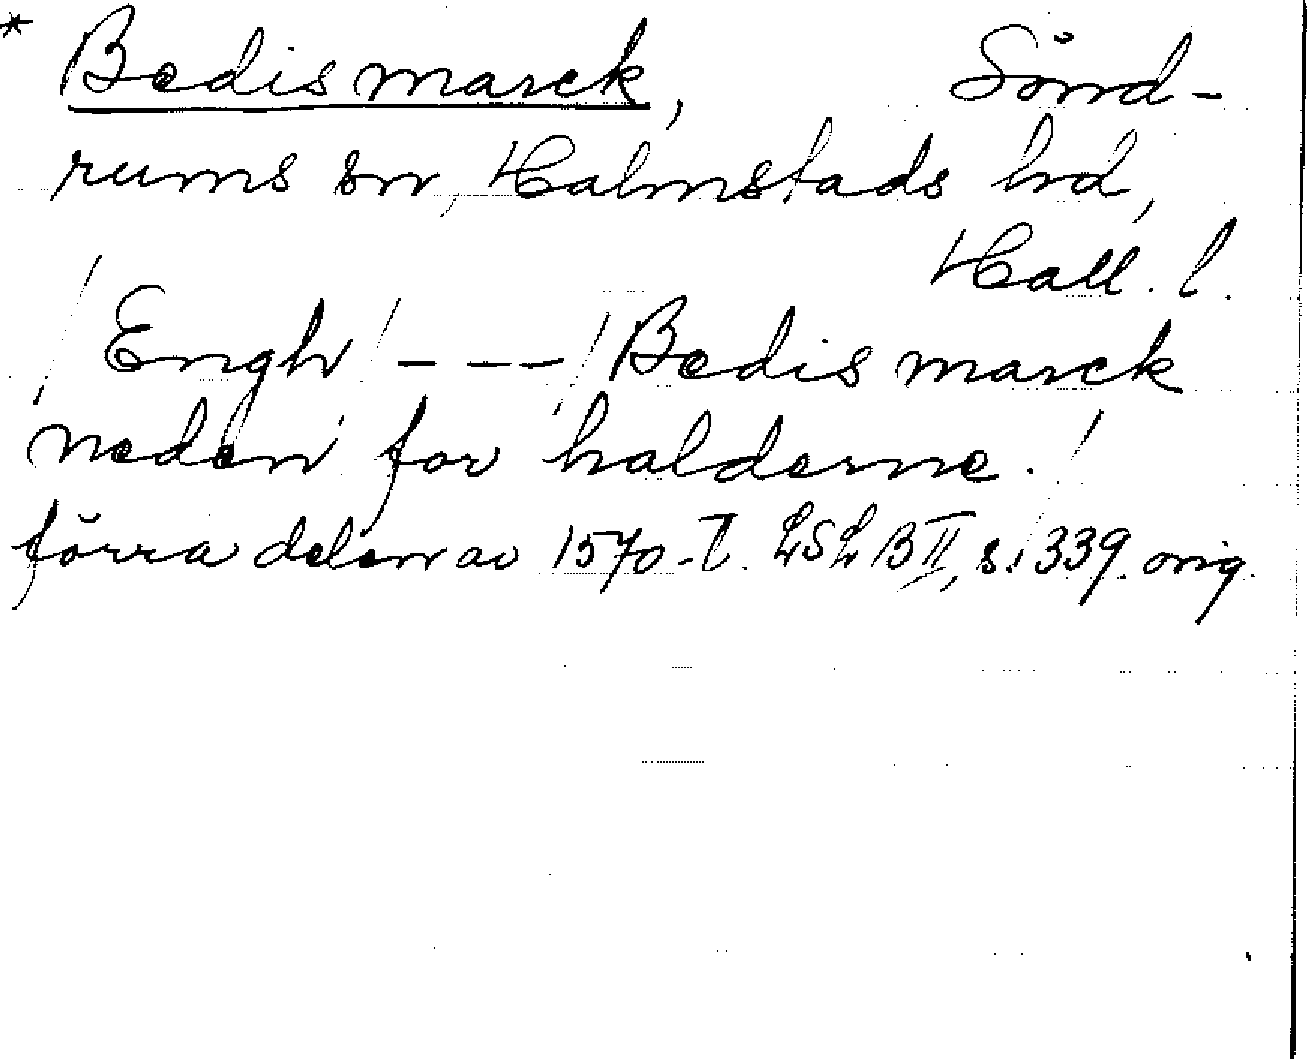 * Bedismarck, Sönd-
rums sn, Halmstads hd,
Hall. l.
/ Engh / - - - / Bedis marck
neden for halderne. /
förra delen av 1570-t. LSLB II, s. 339. orig.